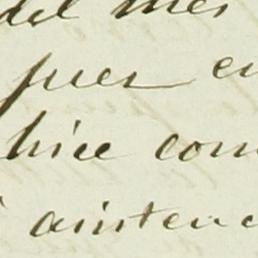 del mes
pues en
hice com
asistenc